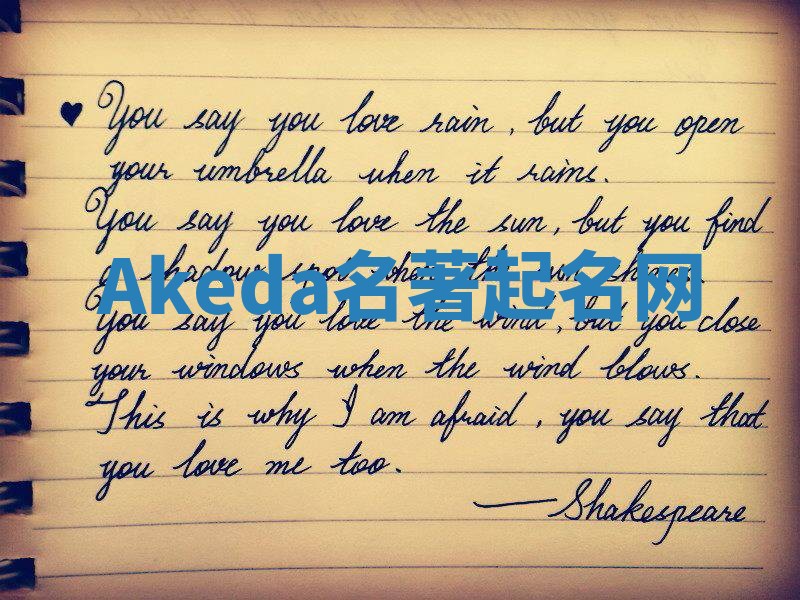 ♥ You say you love rain, but you open
your umbrella when it rains.
You say you love the sun, but you find
a shadow spot when the sun shines.
Akeda名著起名网
You say you love the wind, but you close
your windows when the wind blows.
This is why I am afraid, you say that
you love me too.
— Shakespeare